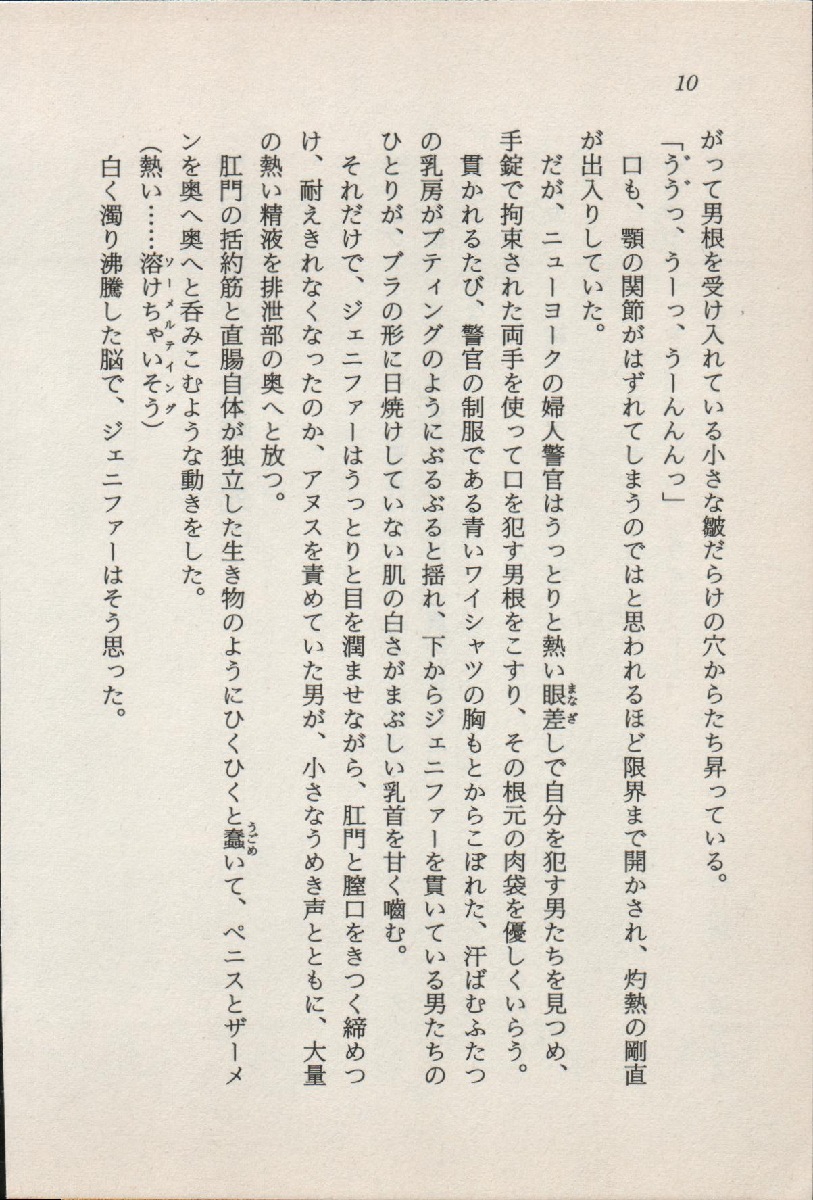 10
がって男根を受け入れている小さな皺だらけの穴からたち昇っている。
「ゔゔっ、うーっ、うーんんんっ」
口も、顎の関節がはずれてしまうのではと思われるほど限界まで開かされ、灼熱の剛直
が出入りしていた。
だが、ニューヨークの婦人警官はうっとりと熱い眼差しで自分を犯す男たちを見つめ、
手錠で拘束された両手を使って口を犯す男根をこすり、その根元の肉袋を優しくいらう。
貫かれるたび、警官の制服である青いワイシャツの胸もとからこぼれた、汗ばむふたつ
の乳房がプティングのようにぶるぶると揺れ、下からジェニファーを貫いている男たちの
ひとりが、ブラの形に日焼けしていない肌の白さがまぶしい乳首を甘く嚙む。
それだけで、ジェニファーはうっとりと目を潤ませながら、肛門と膣口をきつく締めつ
け、耐えきれなくなったのか、アヌスを責めていた男が、小さなうめき声とともに、大量
の熱い精液を排泄部の奥へと放つ。
肛門の括約筋と直腸自体が独立した生き物のようにひくひくと蠢いて、ペニスとザーメ
ンを奥へ奥へと呑みこむような動きをした。
（熱い……溶けちゃいそう）
白く濁り沸騰した脳で、ジェニファーはそう思った。
まなざ
うごめ
ソーメルティング